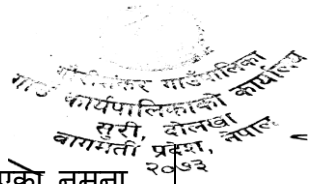 गौरीशंकर गाउँपालिका
गाउँ कार्यपालिकाको कार्यालय
सुरी, दोलखा
बागमती प्रदेश, नेपाल
२०७३
नमूना